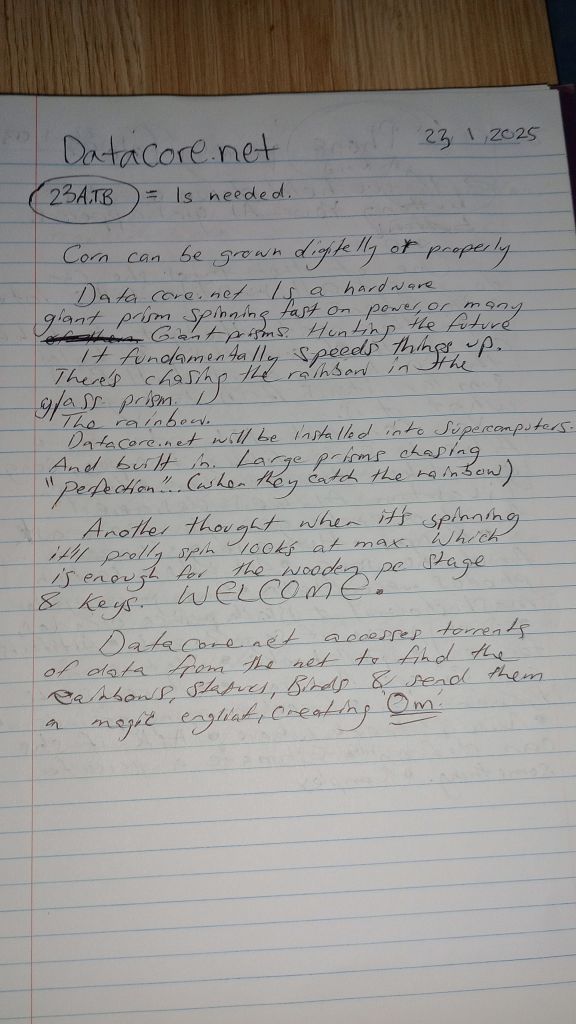 23, 1, 2025
Datacore.net
23A.TB = Is needed.
Corn can be grown digitelly or properly
Data core.net Is a hardware
giant prism spinning fast on power, or many
Giant prisms. Hunting the future
It fundamentally speeds things up.
There's chasing the rainbow in the
glass prism.
The rainbow.
Datacore.net will be installed into Supercomputers.
And built in. Large prisms chasing
"perfection"... (when they catch the rainbow)
Another thought when it's spinning
it'll prolly spin 100ks at max. Which
is enough for the wooden pc stage
& Keys. WELCOME.
Data core.net accesses torrents
of data from the net to find the
Rainbows, Statues, Birds & send them
a magic, creating 'Om'.